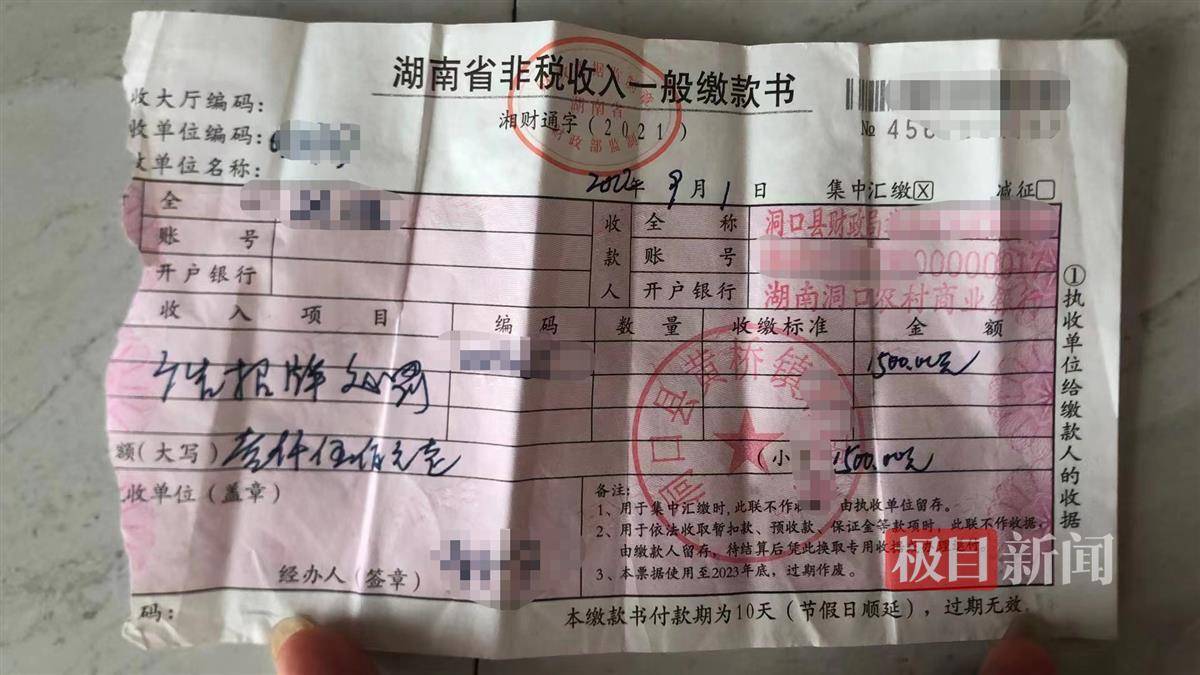 湖南省非税收入一般缴款书
湘财通字(2021)
收大厅编码:
收单位编码:
收单位名称:
№ 458
2022年 9月 1日 集中汇缴☒ 减征☐
全
账 号
开户银行
收款人
全 称 洞口县财政局
账 号 00000017
开户银行 湖南洞口农村商业银行
收入项目 编码 数量 收缴标准 金额
广告招牌处罚 1500.00元
额(大写) 壹仟伍佰元整 (小 1500.00元
收单位(盖章)
经办人(签章)
备注:
1、用于集中汇缴时,此联不作收 由执收单位留存。
2、用于依法收取暂扣款、预收款、保证金等款项时,此联不作收据,
由缴款人留存,待结算后凭此换取专用收
3、本票据使用至2023年底,过期作废。
码:
本缴款书付款期为10天(节假日顺延),过期无效。
①执收单位给缴款人的收据
湖南省
财政部监制
洞口县黄桥镇
极目新闻